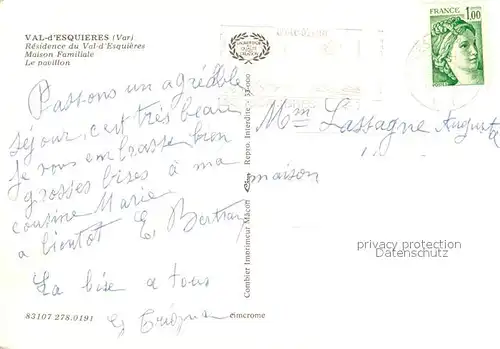 VAL-d'ESQUIERES (Var)
Résidence du Val-d'Esquières
Maison Familiale
Le pavillon
Passons un agréable
séjour, c'est très beau
Je vous embrasse bien
grosses bises à ma
cousine Marie
a bientôt E. Bertran
La bise a tous
83107.278.0191
cimcrome
Combier Imprimeur Mâcon
Repro. Interdite
FRANCE
1,00
Mm Lassagne Augusta
maison
privacy protection
AnsichtskartenVersand.com